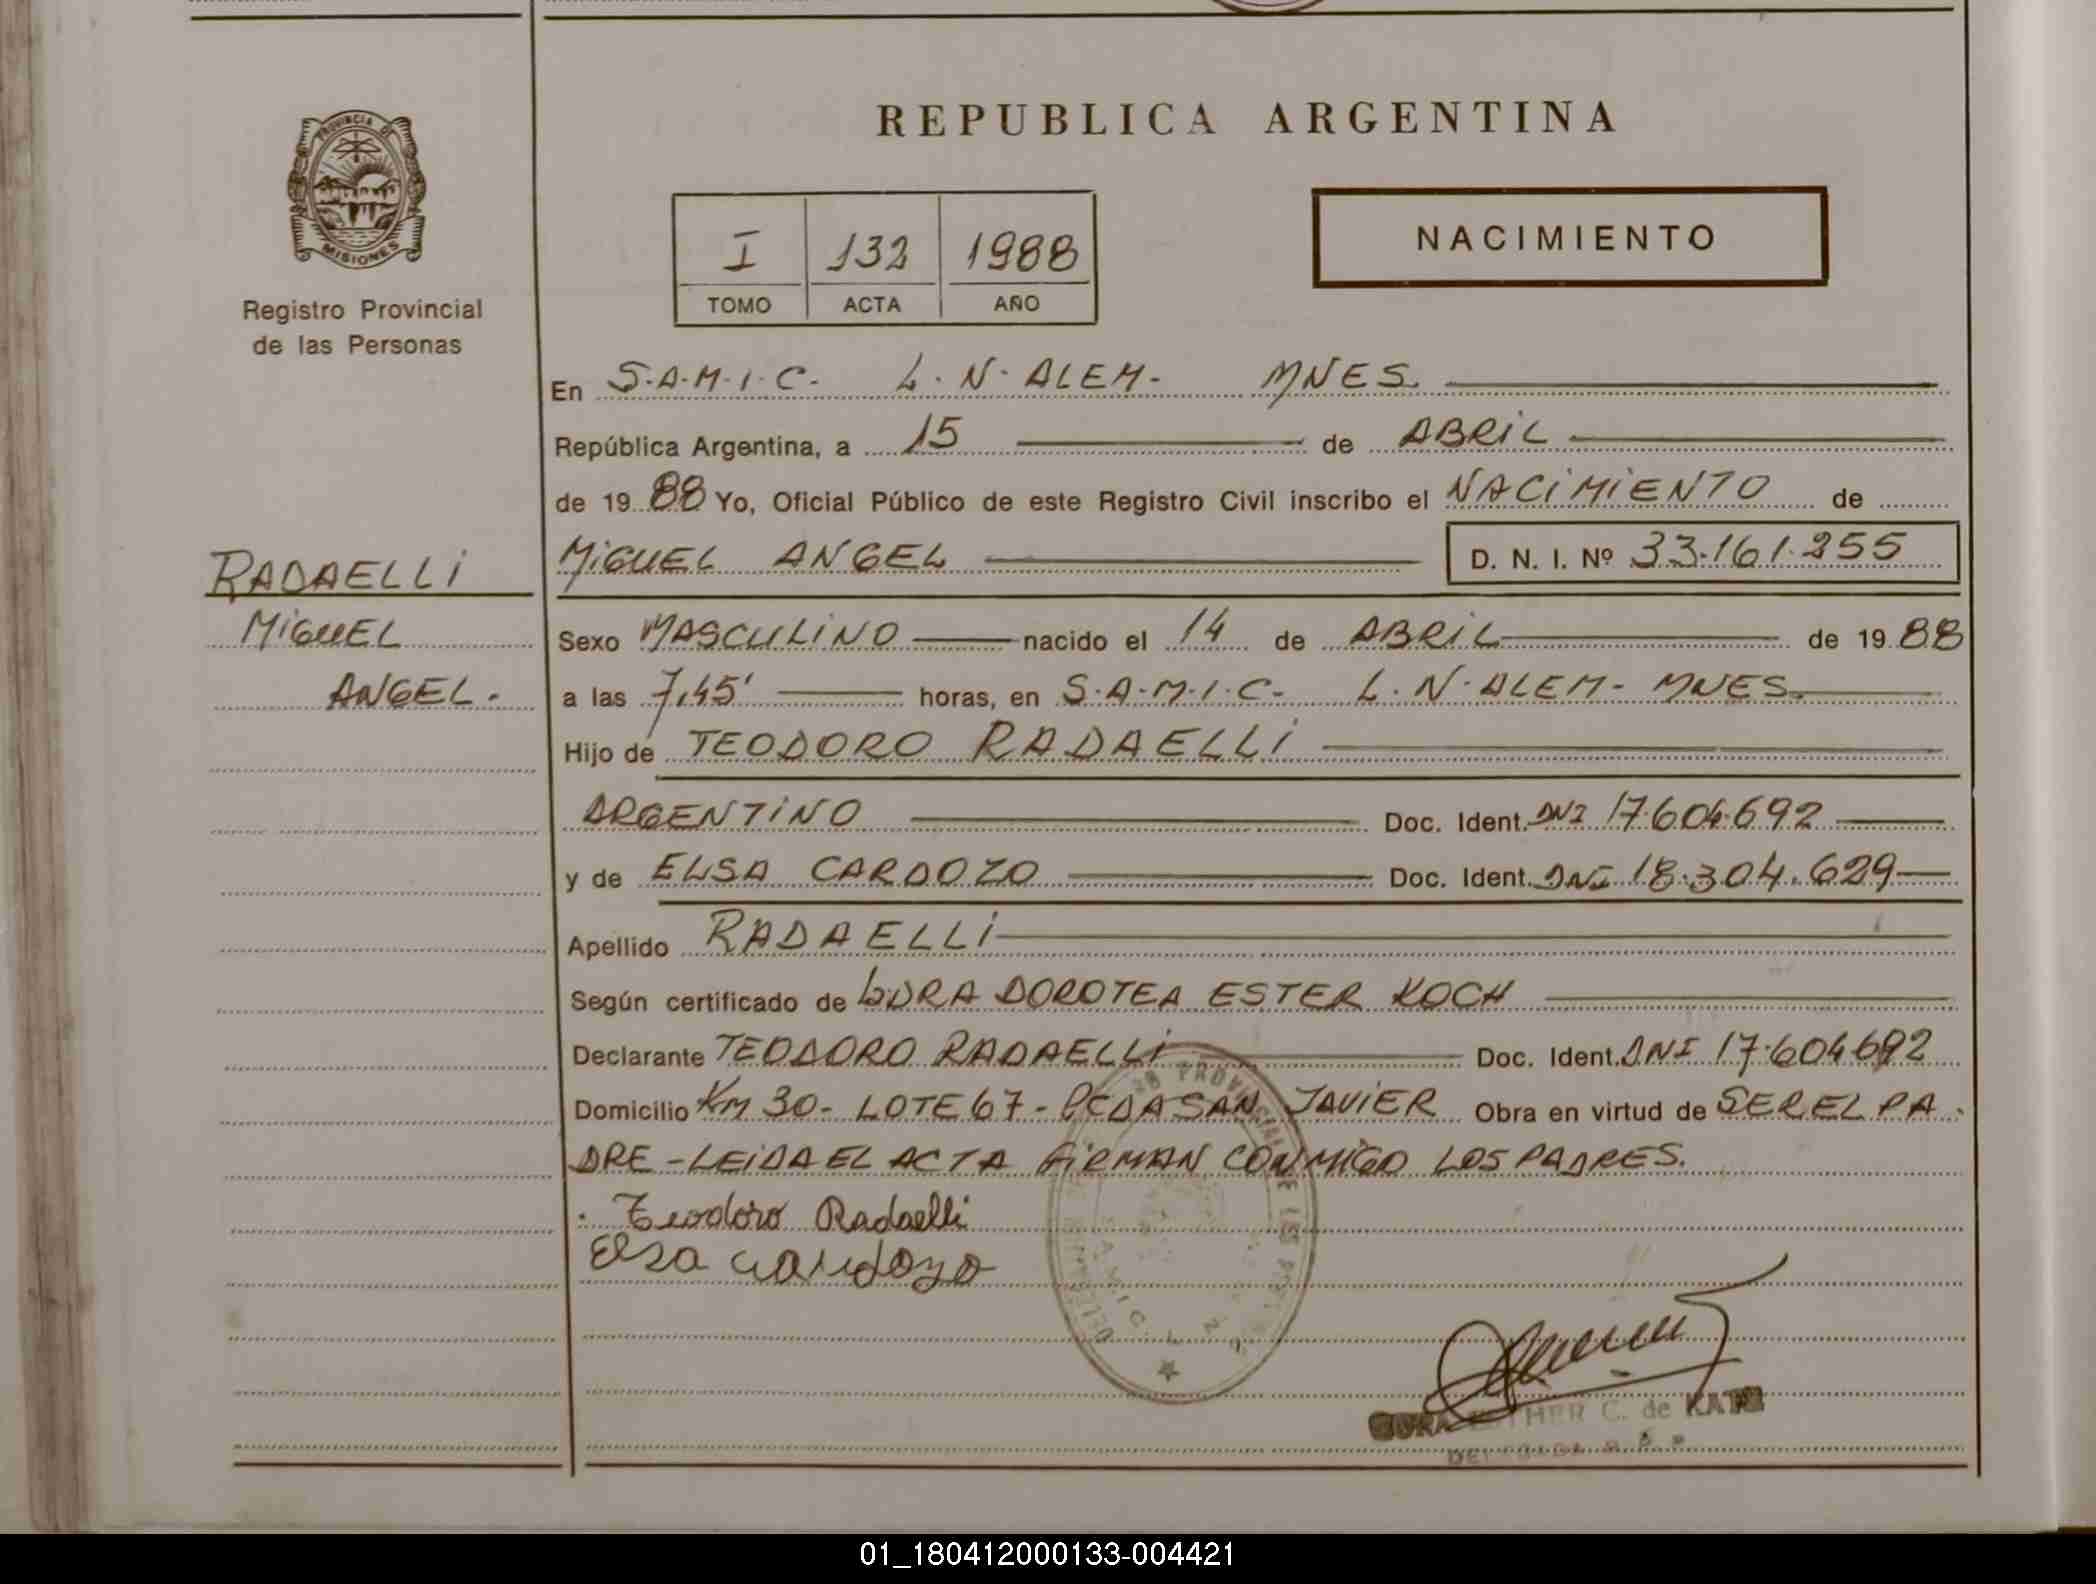 PROVINCIA DE
MISIONES
Registro Provincial
de las Personas
RADAELLI
MIGUEL
ANGEL.
REPUBLICA ARGENTINA
I 132 1988
TOMO ACTA AÑO
NACIMIENTO
En S.A.M.I.C. L.N.ALEM- MNES.
República Argentina, a 15 de ABRIL
de 1988 Yo, Oficial Público de este Registro Civil inscribo el NACIMIENTO de
MIGUEL ANGEL D. N. I. Nº 33.161.255
Sexo MASCULINO nacido el 14 de ABRIL de 1988
a las 7,45' horas, en S.A.M.I.C. L.N.ALEM- MNES.
Hijo de TEODORO RADAELLI
ARGENTINO Doc. Ident. DNI 17.604.692
y de ELSA CARDOZO Doc. Ident. DNI 18.304.629
Apellido RADAELLI
Según certificado de DORA DOROTEA ESTER KOCH
Declarante TEODORO RADAELLI Doc. Ident. DNI 17.604.692
Domicilio KM 30- LOTE 67- PCDA SAN JAVIER Obra en virtud de SER EL PA
DRE - LEIDA EL ACTA FIRMAN CONMIGO LOS PADRES.
Teodoro Radaelli
Elsa Cardozo
C. de KATZ
01_180412000133-004421